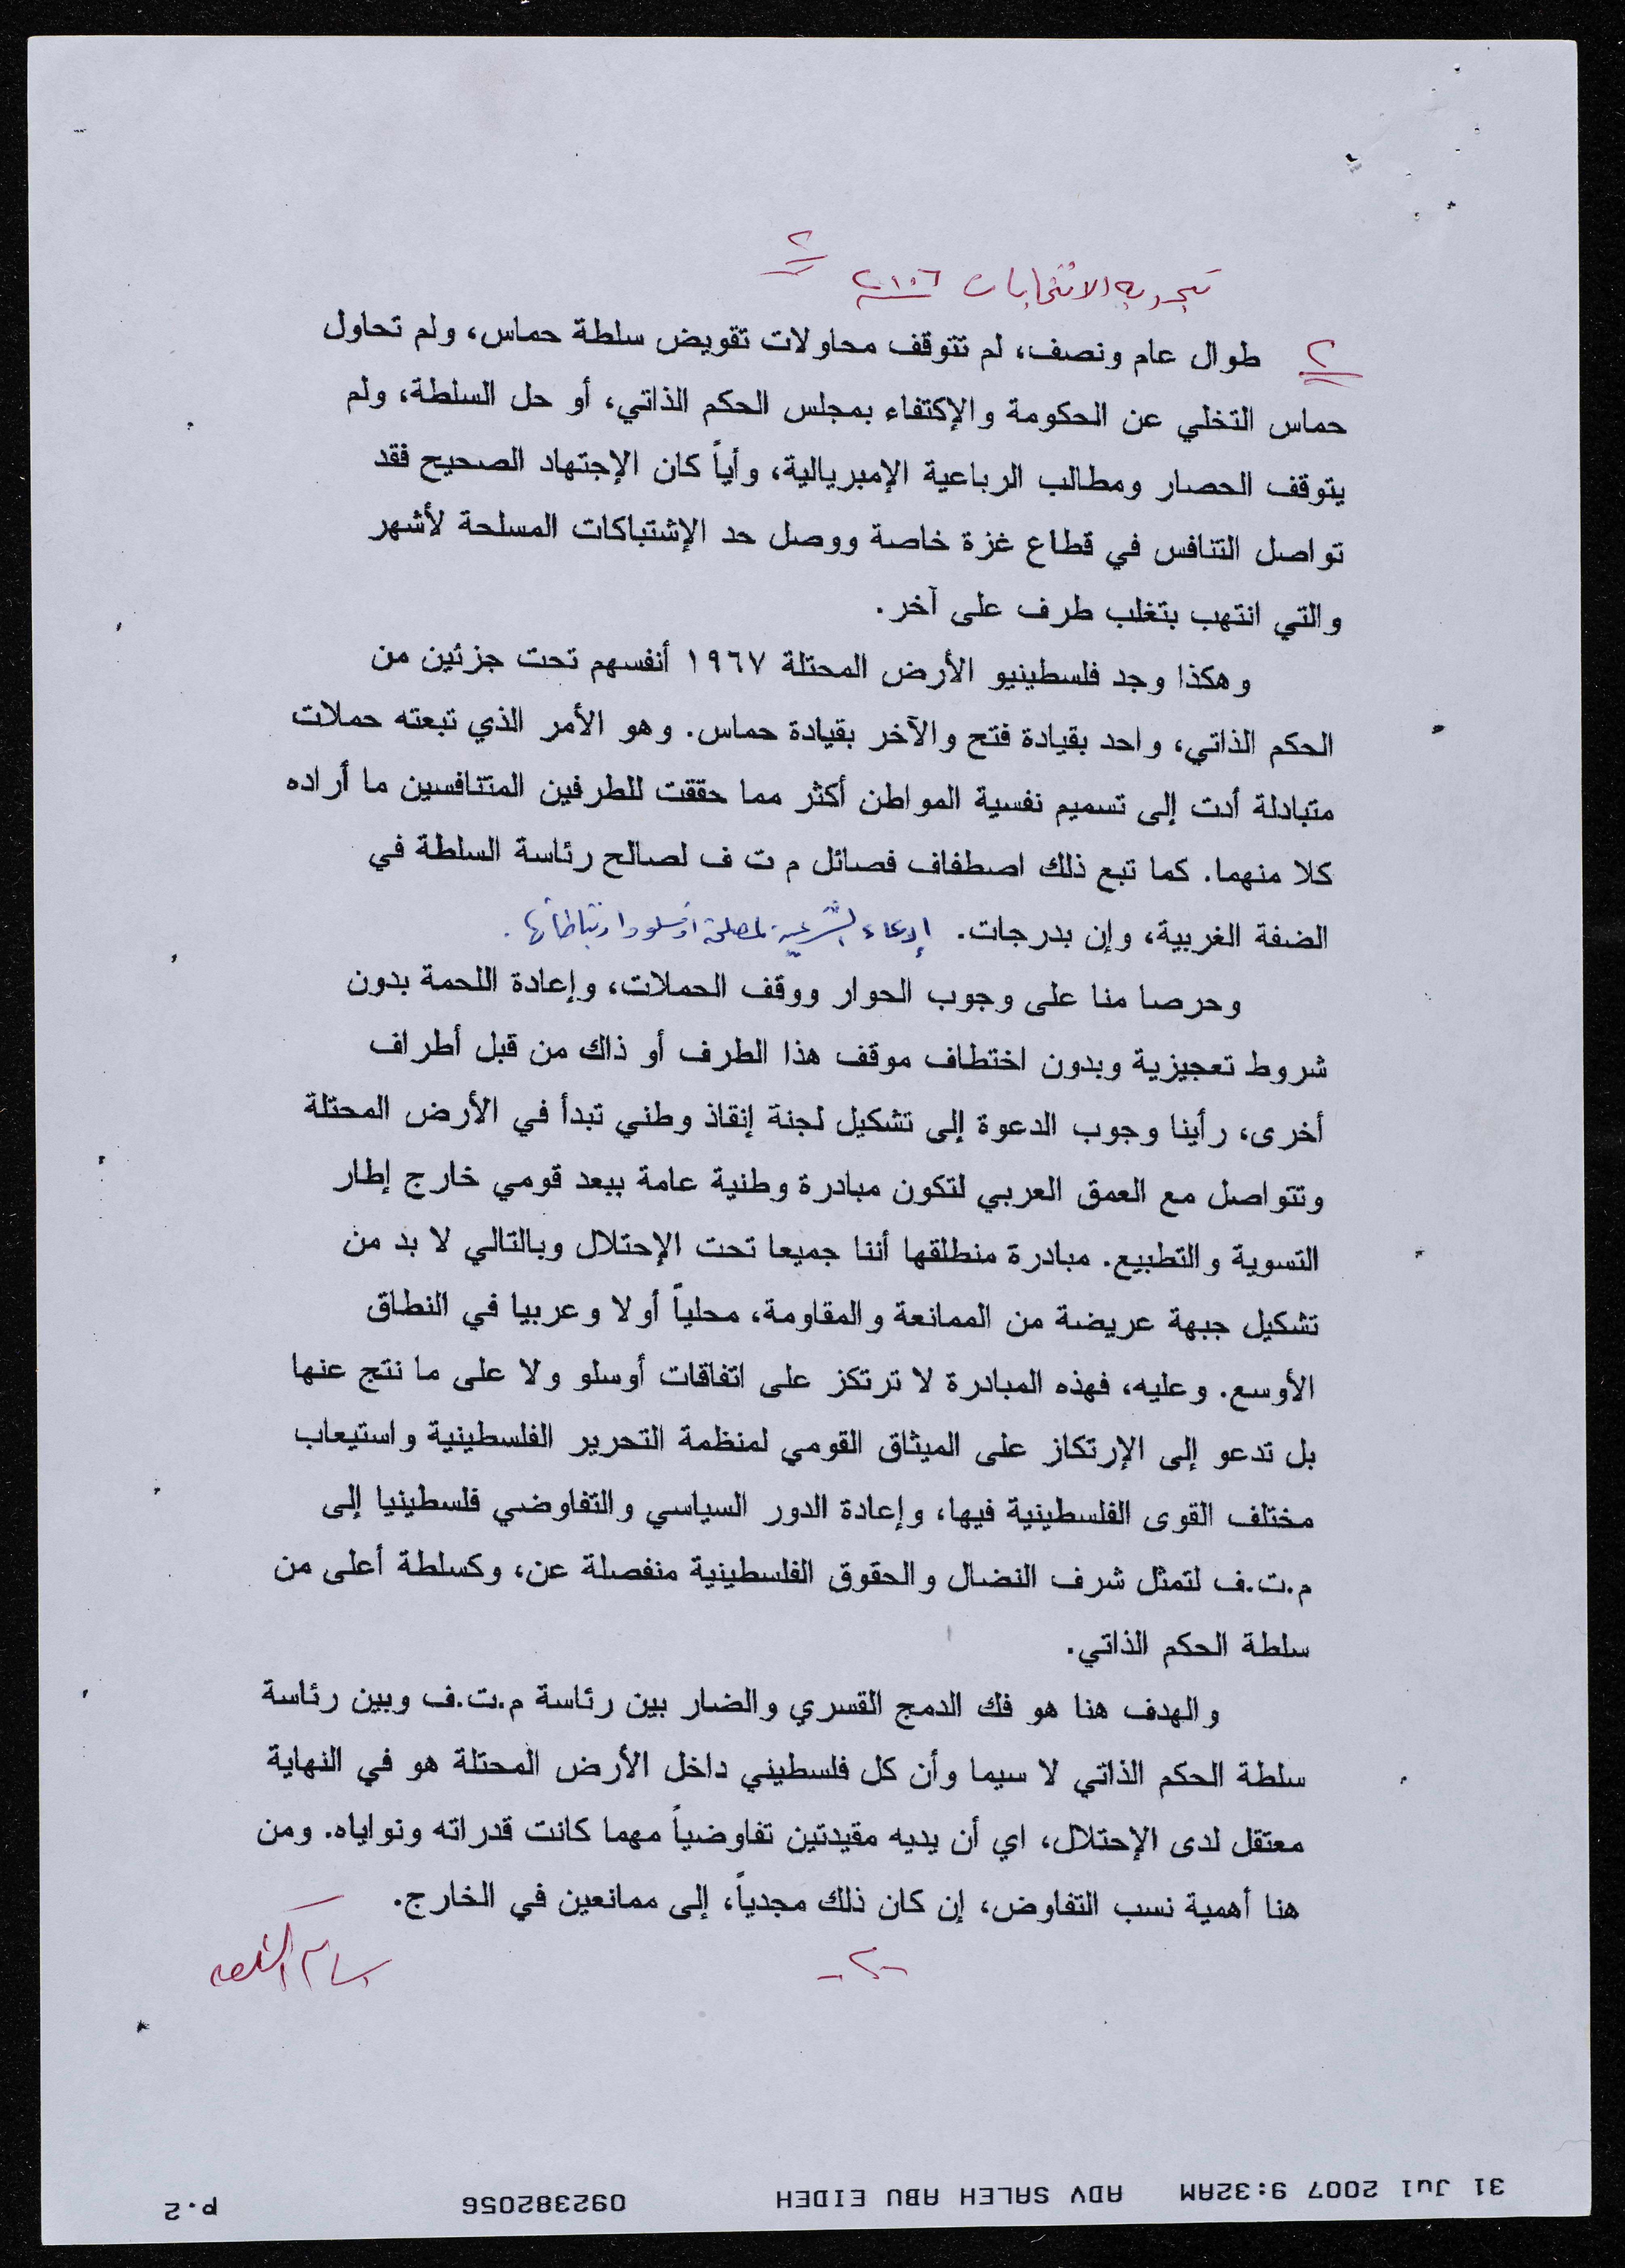 ٢
تجربة الانتخابات ٢٠٠٦
٢ طوال عام ونصف، لم تتوقف محاولات تقويض سلطة حماس، ولم تحاول
حماس التخلي عن الحكومة والإكتفاء بمجلس الحكم الذاتي، أو حل السلطة، ولم
يتوقف الحصار ومطالب الرباعية الإمبريالية، وأياً كان الإجتهاد الصحيح فقد
تواصل التنافس في قطاع غزة خاصة ووصل حد الإشتباكات المسلحة لأشهر
والتي انتهب بتغلب طرف على آخر.
وهكذا وجد فلسطينيو الأرض المحتلة ١٩٦٧ أنفسهم تحت جزئين من
الحكم الذاتي، واحد بقيادة فتح والآخر بقيادة حماس. وهو الأمر الذي تبعته حملات
متبادلة أدت إلى تسميم نفسية المواطن أكثر مما حققت للطرفين المتنافسين ما أراده
كلا منهما. كما تبع ذلك اصطفاف فصائل م ت ف لصالح رئاسة السلطة في
الضفة الغربية، وإن بدرجات. إدعاء الشرعية لمصلحة أوسلو وارتباطاتها.
وحرصا منا على وجوب الحوار ووقف الحملات، وإعادة اللحمة بدون
شروط تعجيزية وبدون اختطاف موقف هذا الطرف أو ذاك من قبل أطراف
أخرى، رأينا وجوب الدعوة إلى تشكيل لجنة إنقاذ وطني تبدأ في الأرض المحتلة
وتتواصل مع العمق العربي لتكون مبادرة وطنية عامة ببعد قومي خارج إطار
التسوية والتطبيع. مبادرة منطلقها أننا جميعا تحت الإحتلال وبالتالي لا بد من
تشكيل جبهة عريضة من الممانعة والمقاومة، محلياً أولا وعربيا في النطاق
الأوسع. وعليه، فهذه المبادرة لا ترتكز على اتفاقات أوسلو ولا على ما نتج عنها
بل تدعو إلى الإرتكاز على الميثاق القومي لمنظمة التحرير الفلسطينية واستيعاب
مختلف القوى الفلسطينية فيها، وإعادة الدور السياسي والتفاوضي فلسطينيا إلى
م.ت.ف لتمثل شرف النضال والحقوق الفلسطينية منفصلة عن، وكسلطة أعلى من
سلطة الحكم الذاتي.
والهدف هنا هو فك الدمج القسري والضار بين رئاسة م.ت.ف وبين رئاسة
سلطة الحكم الذاتي لا سيما وأن كل فلسطيني داخل الأرض المحتلة هو في النهاية
معتقل لدى الإحتلال، اي أن يديه مقيدتين تفاوضياً مهما كانت قدراته ونواياه. ومن
هنا أهمية نسب التفاوض، إن كان ذلك مجدياً، إلى ممانعين في الخارج.
-٢-
بسام الشكعة
31 Jul 2007 9:32AM ADV SALEH ABU EIDEH 092382056 P.2